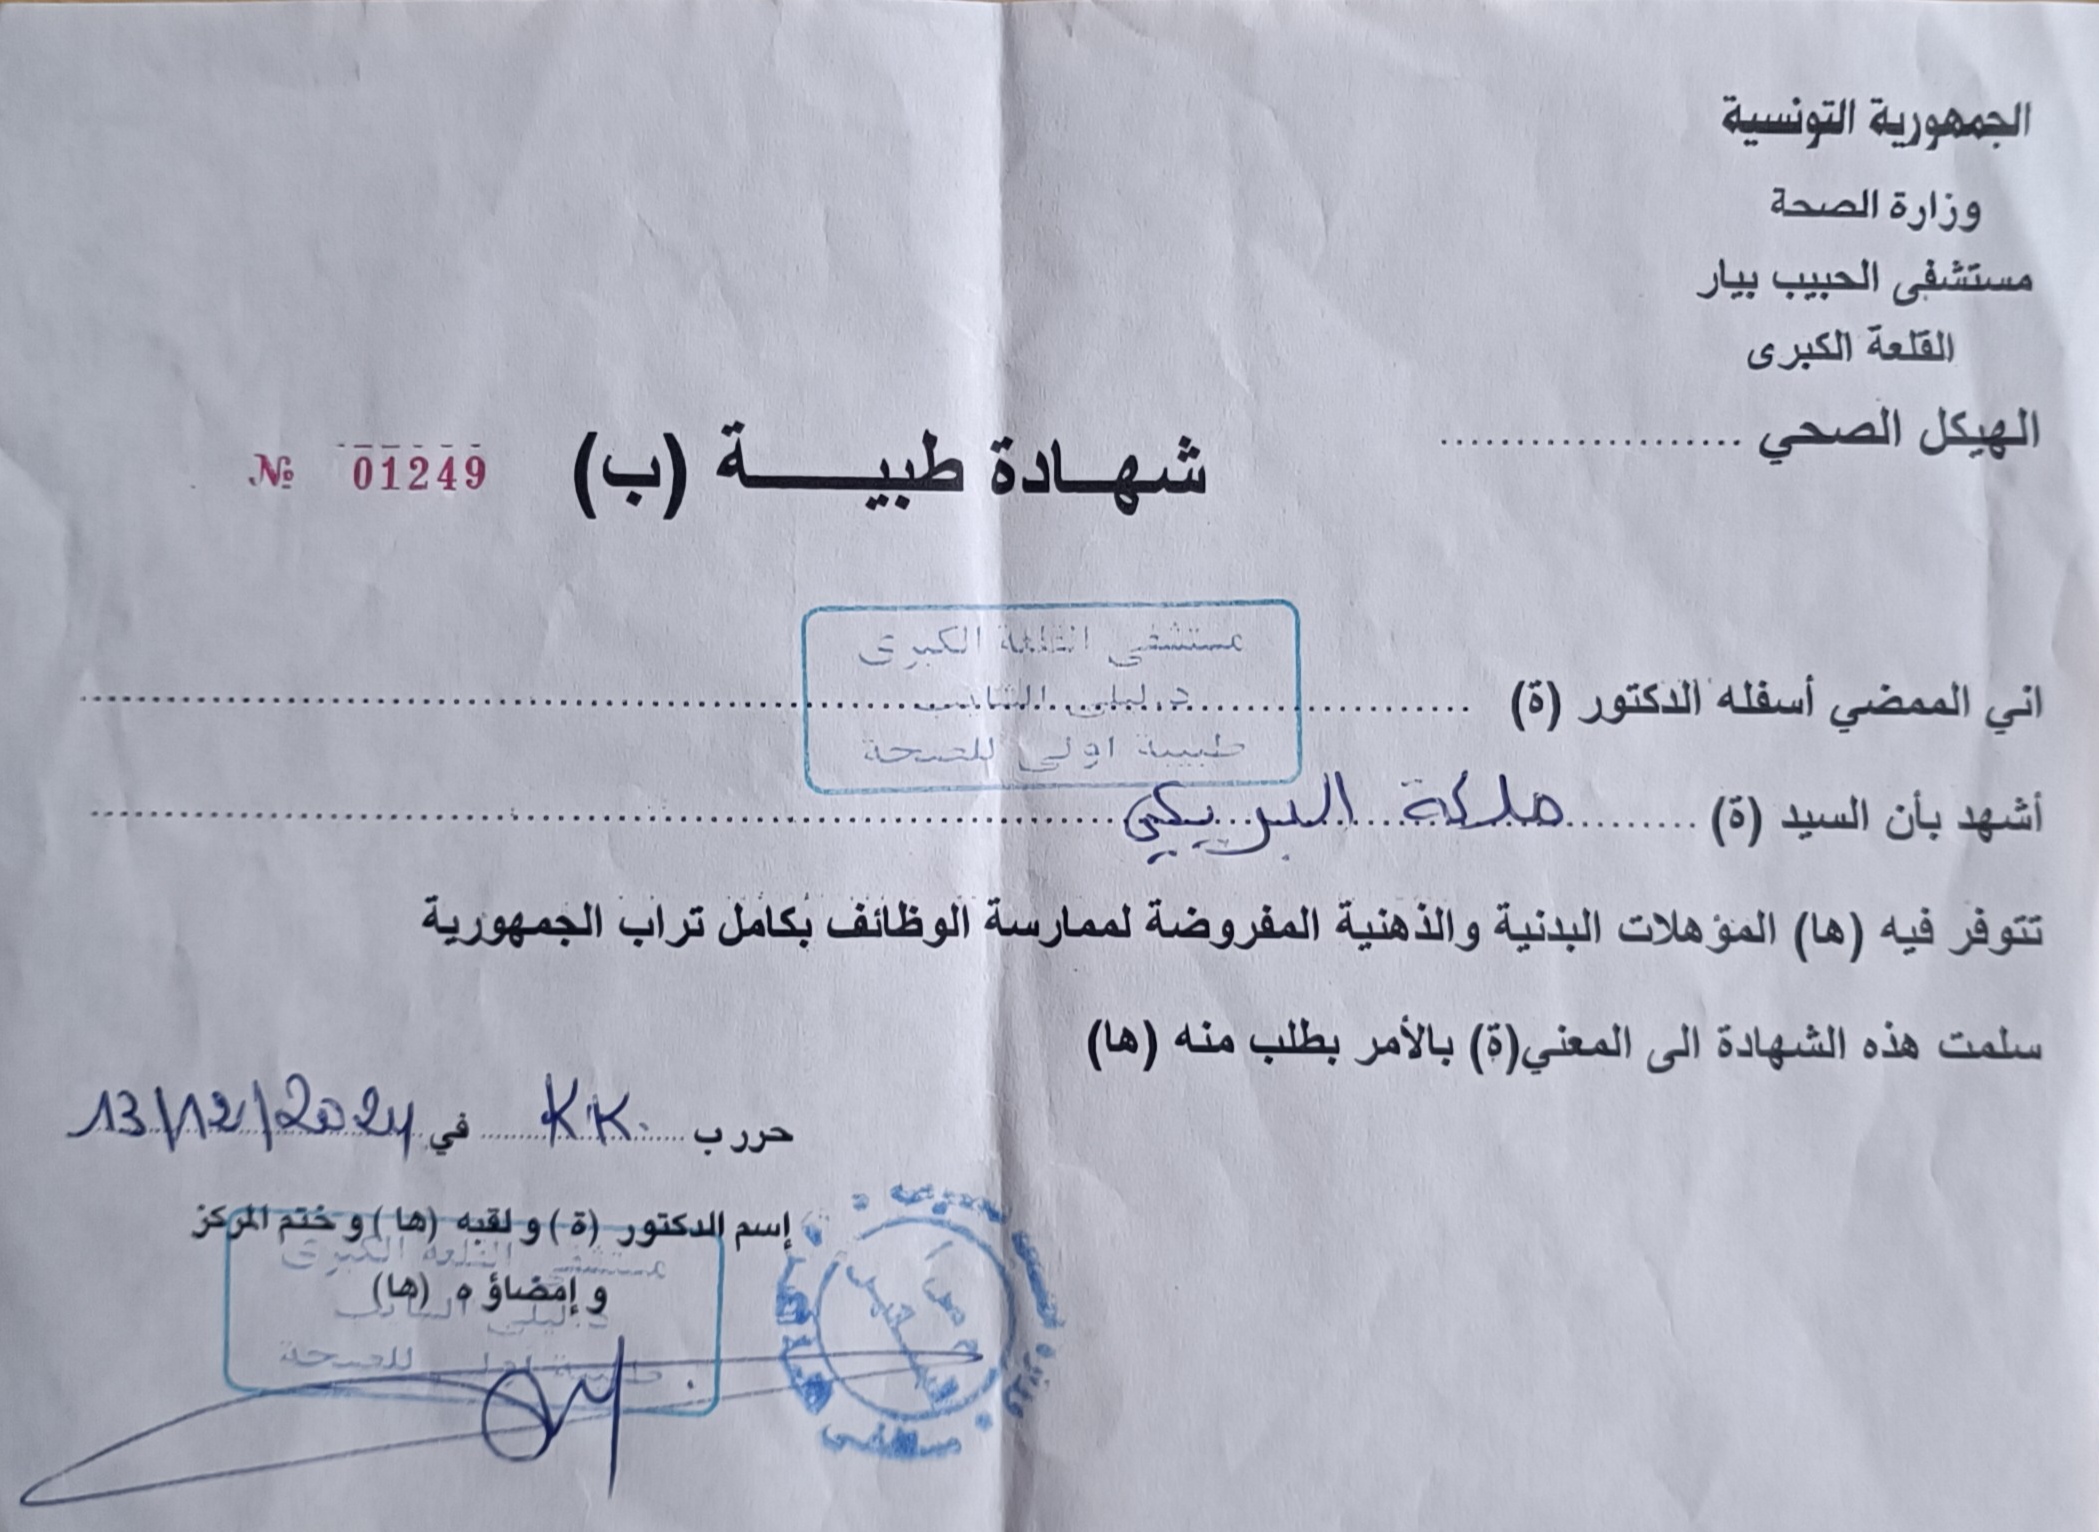 الجمهورية التونسية
وزارة الصحة
مستشفى الحبيب بيار
القلعة الكبرى
الهيكل الصحي ....................
شهادة طبية (ب) № 01249
مستشفى القلعة الكبرى
د. ليلى
طبيبة اولى للصحة
اني الممضي أسفله الدكتور (ة)
أشهد بأن السيد (ة) ملكة البريكي
تتوفر فيه (ها) المؤهلات البدنية والذهنية المفروضة لممارسة الوظائف بكامل تراب الجمهورية
سلمت هذه الشهادة الى المعني(ة) بالأمر بطلب منه (ها)
حرر ب KK. في 13/12/2024
إسم الدكتور (ة) و لقبه (ها) و ختم المركز
و إمضاؤه (ها)
مستشفى القلعة الكبرى
د. ليلى
طبيبة اولى للصحة